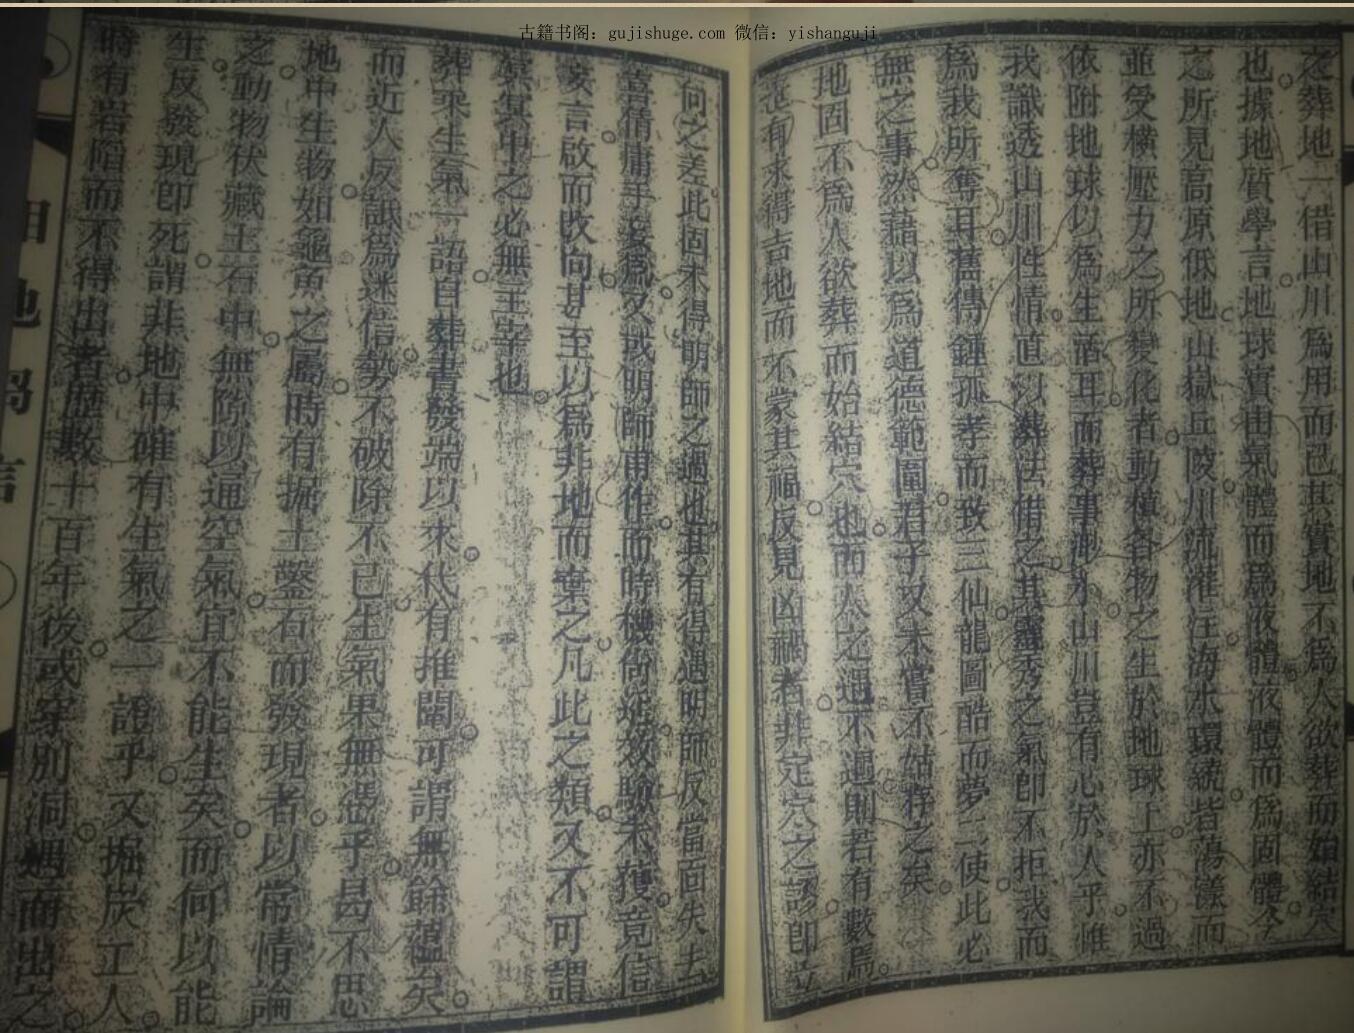 古籍书阁：gujishuge.com 微信：yishanguji
之葬地一借山川爲用而已其實地不爲人欲葬而始結穴
也據地質學言地球實由氣體而爲液體液體而爲固體今
之所見高原低地山嶽丘陵川流灌注海水環繞皆蕩漾而
並受橫壓力之所變化者動植各物之生於地球上亦不過
依附地球以爲生活耳而葬事山川豈有心於人乎惟
我識透山川性情直以葬法借之其靈秀之氣即不拒我而
爲我所奪耳舊傳鍾孤孝而致三仙龍圖酷而夢二使此必
無之事然藉以爲道德範圍君子又未嘗不姑存之矣
地固不爲人欲葬而始結穴也而人之遇不遇則若有數焉
有求得吉地而不蒙其福反見凶禍者非定穴之謬即立
向之差此固未得明師之過也其有得遇明師反當回失去
喜倩庸手又或明師甫作而時機尚效驗未獲竟信
妄言啟而改向甚至以爲非地而棄之凡此之類又不可謂
冥冥中之必無主宰也
葬乘生氣一語自葬書發端以來代有推闡可謂無餘蘊矣
而近人反詆爲迷信勢不破除不已生氣果無憑乎曷不思
地中生物如龜魚之屬時有掘土鑿石而發現者以常情論
之動物伏藏土石中無隙以通空氣宜不能生矣而何以能
生反發現即死謂非地中確有生氣之一證乎又掘炭工人
時有岩陷而不得出者歷數十百年後或穿別洞遇而出之
相地
言